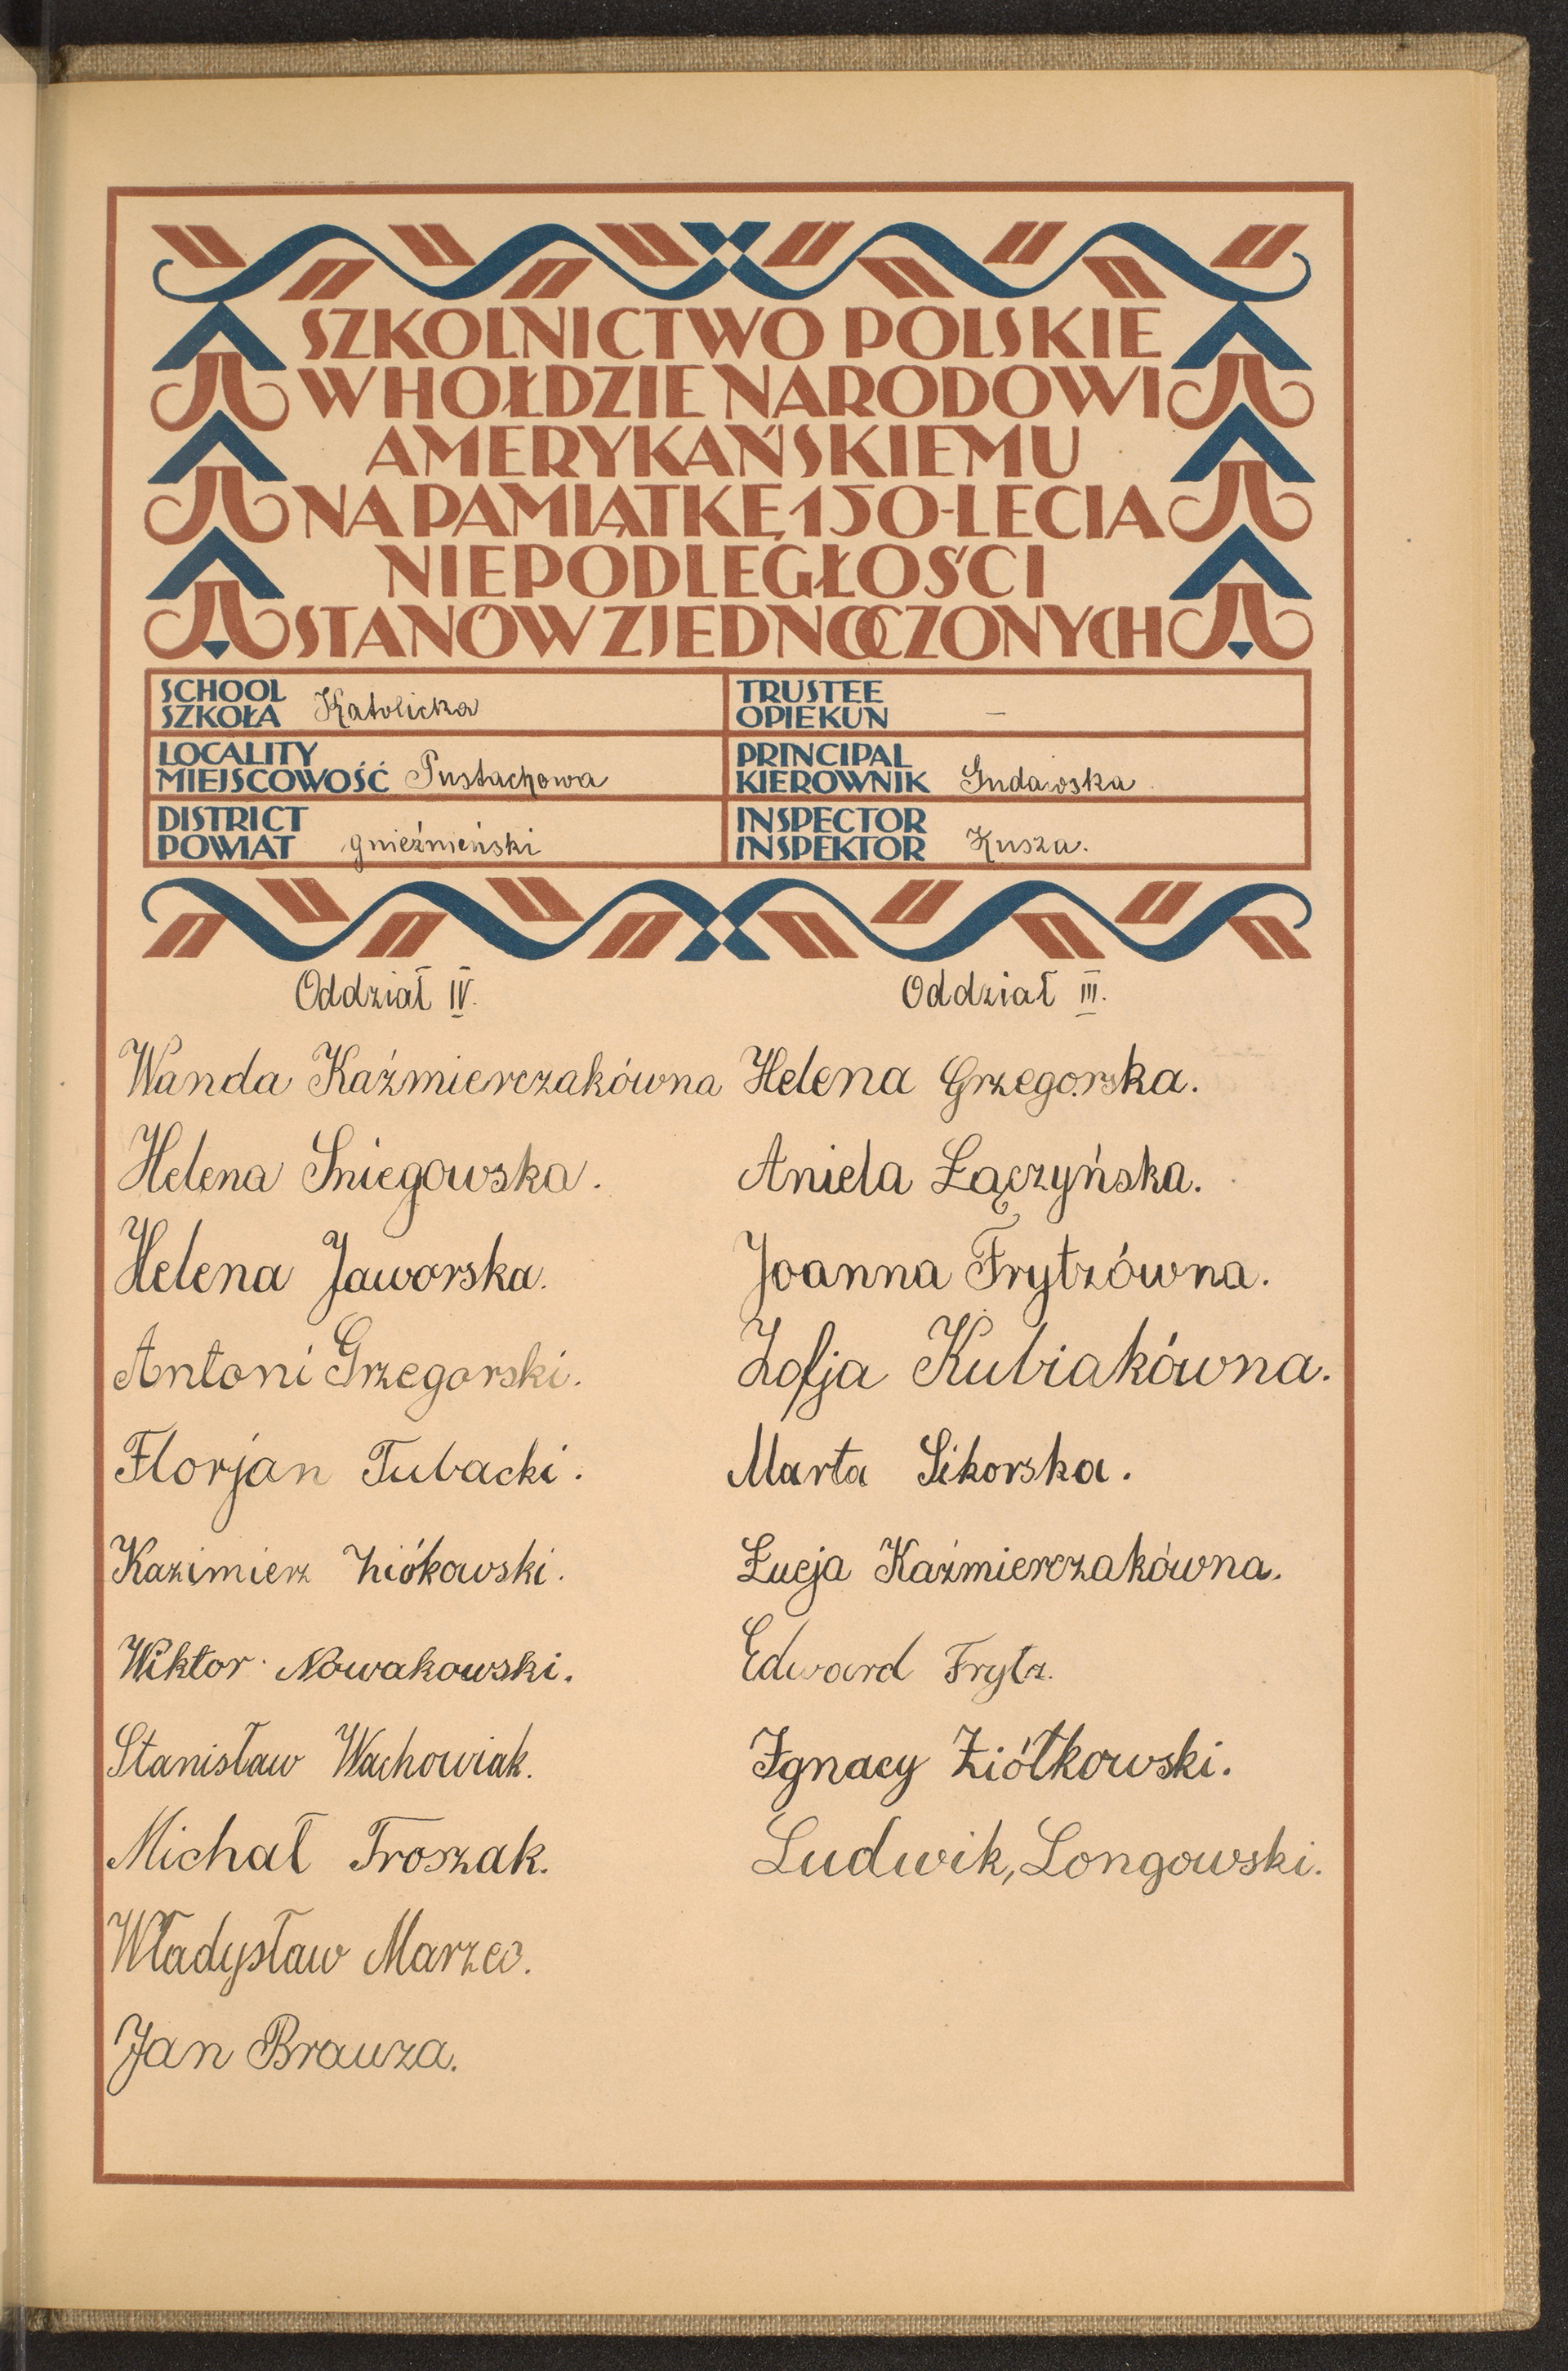 SZKOLNICTWO POLSKIE
W HOŁDZIE NARODOWI
AMERYKAŃSKIEMU
NA PAMIĄTKĘ 150-LECIA
NIEPODLEGŁOŚCI
STANÓW ZJEDNOCZONYCH
SCHOOL
SZKOŁA Katolicka
TRUSTEE
OPIEKUN –
LOCALITY
MIEJSCOWOŚĆ Pustachowa
PRINCIPAL
KIEROWNIK Gudawska
DISTRICT
POWIAT gnieźnieński
INSPECTOR
INSPEKTOR Kusza.
Oddział IV.
Wanda Kaźmierczakówna
Helena Sniegowska.
Helena Jaworska.
Antoni Grzegorski.
Florjan Tubacki.
Kazimierz Ziókowski.
Wiktor Nowakowski.
Stanisław Wachowiak.
Michał Troszak.
Władysław Marzec.
Jan Brauza.
Oddział III.
Helena Grzegorska.
Aniela Łączyńska.
Joanna Frytzówna.
Zofja Kubiakówna.
Marta Sikorska.
Łucja Kaźmierczakówna.
Edward Frytz.
Ignacy Ziółkowski.
Ludwik, Longowski.